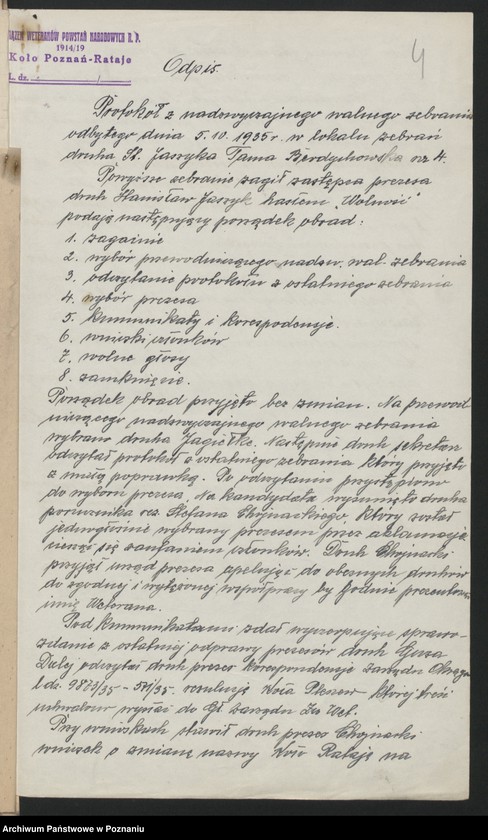 ZWIĄZEK WETERANÓW POWSTAŃ NARODOWYCH R. P.
1914/19
Koło Poznań-Rataje
L. dz.
4
Odpis.
Protokół z nadzwyczajnego walnego zebrania
odbytego dnia 5. 10. 1935 r. w lokalu zebrań
druha St. Jaszyka Tama Berdychowska nr 4.
Powyższe zebranie zagił zastępca prezesa
druh Hanisław Jaszyk hasłem "Wolność"
podają następujący porządek obrad:
1. zagainie
2. wybór przewodniczącego nadzw. wal. zebrania
3. odczytanie protokółu z ostatniego zebrania
4. wybór prezesa
5. kommunikaty i korespodencje.
6. wnioski członków
7. wolne głosy
8. zamknięcie.
Porządek obrad przyjęto bez zmian. Na przewod-
niczącego nadzwyczajnego walnego zebrania
wybrano druha Jagiełkę. Następnie druh sekretarz
odczytał protokół z ostatniego zebrania który przyjęto
z małą poprawką. Po odczytaniu przystąpiono
do wyboru prezesa, Na kandydata wysunięto druha
porucznika rez. Stefana Chojnackiego, który został
jednogłośnie wybrany prezesem przez aklamację
ciesząc się zaufaniem członków. Druh Chojnacki
przyjął urząd prezesa apelując do obecnych druhów
do zgodnej i wytężonej współpracy by godnie prezentować
imię Weterana.
Pod kommunikatami zdał wyczerpujące sprawo-
zdanie z ostatniej odprawy prezesów druh
Dalej odczytał druh prezes korespondencje zarządu Okręgu
l. dz. 9873/35 - 571/35. rezulucję koła której treść
uchwalono wysłać do Gł. zarządu Zw. Wet.
Przy wnioskach stawił druh prezes Chojnacki
wniosek o zmianę nazwy Koło Rataje na
Archiwum Państwowe w Poznaniu